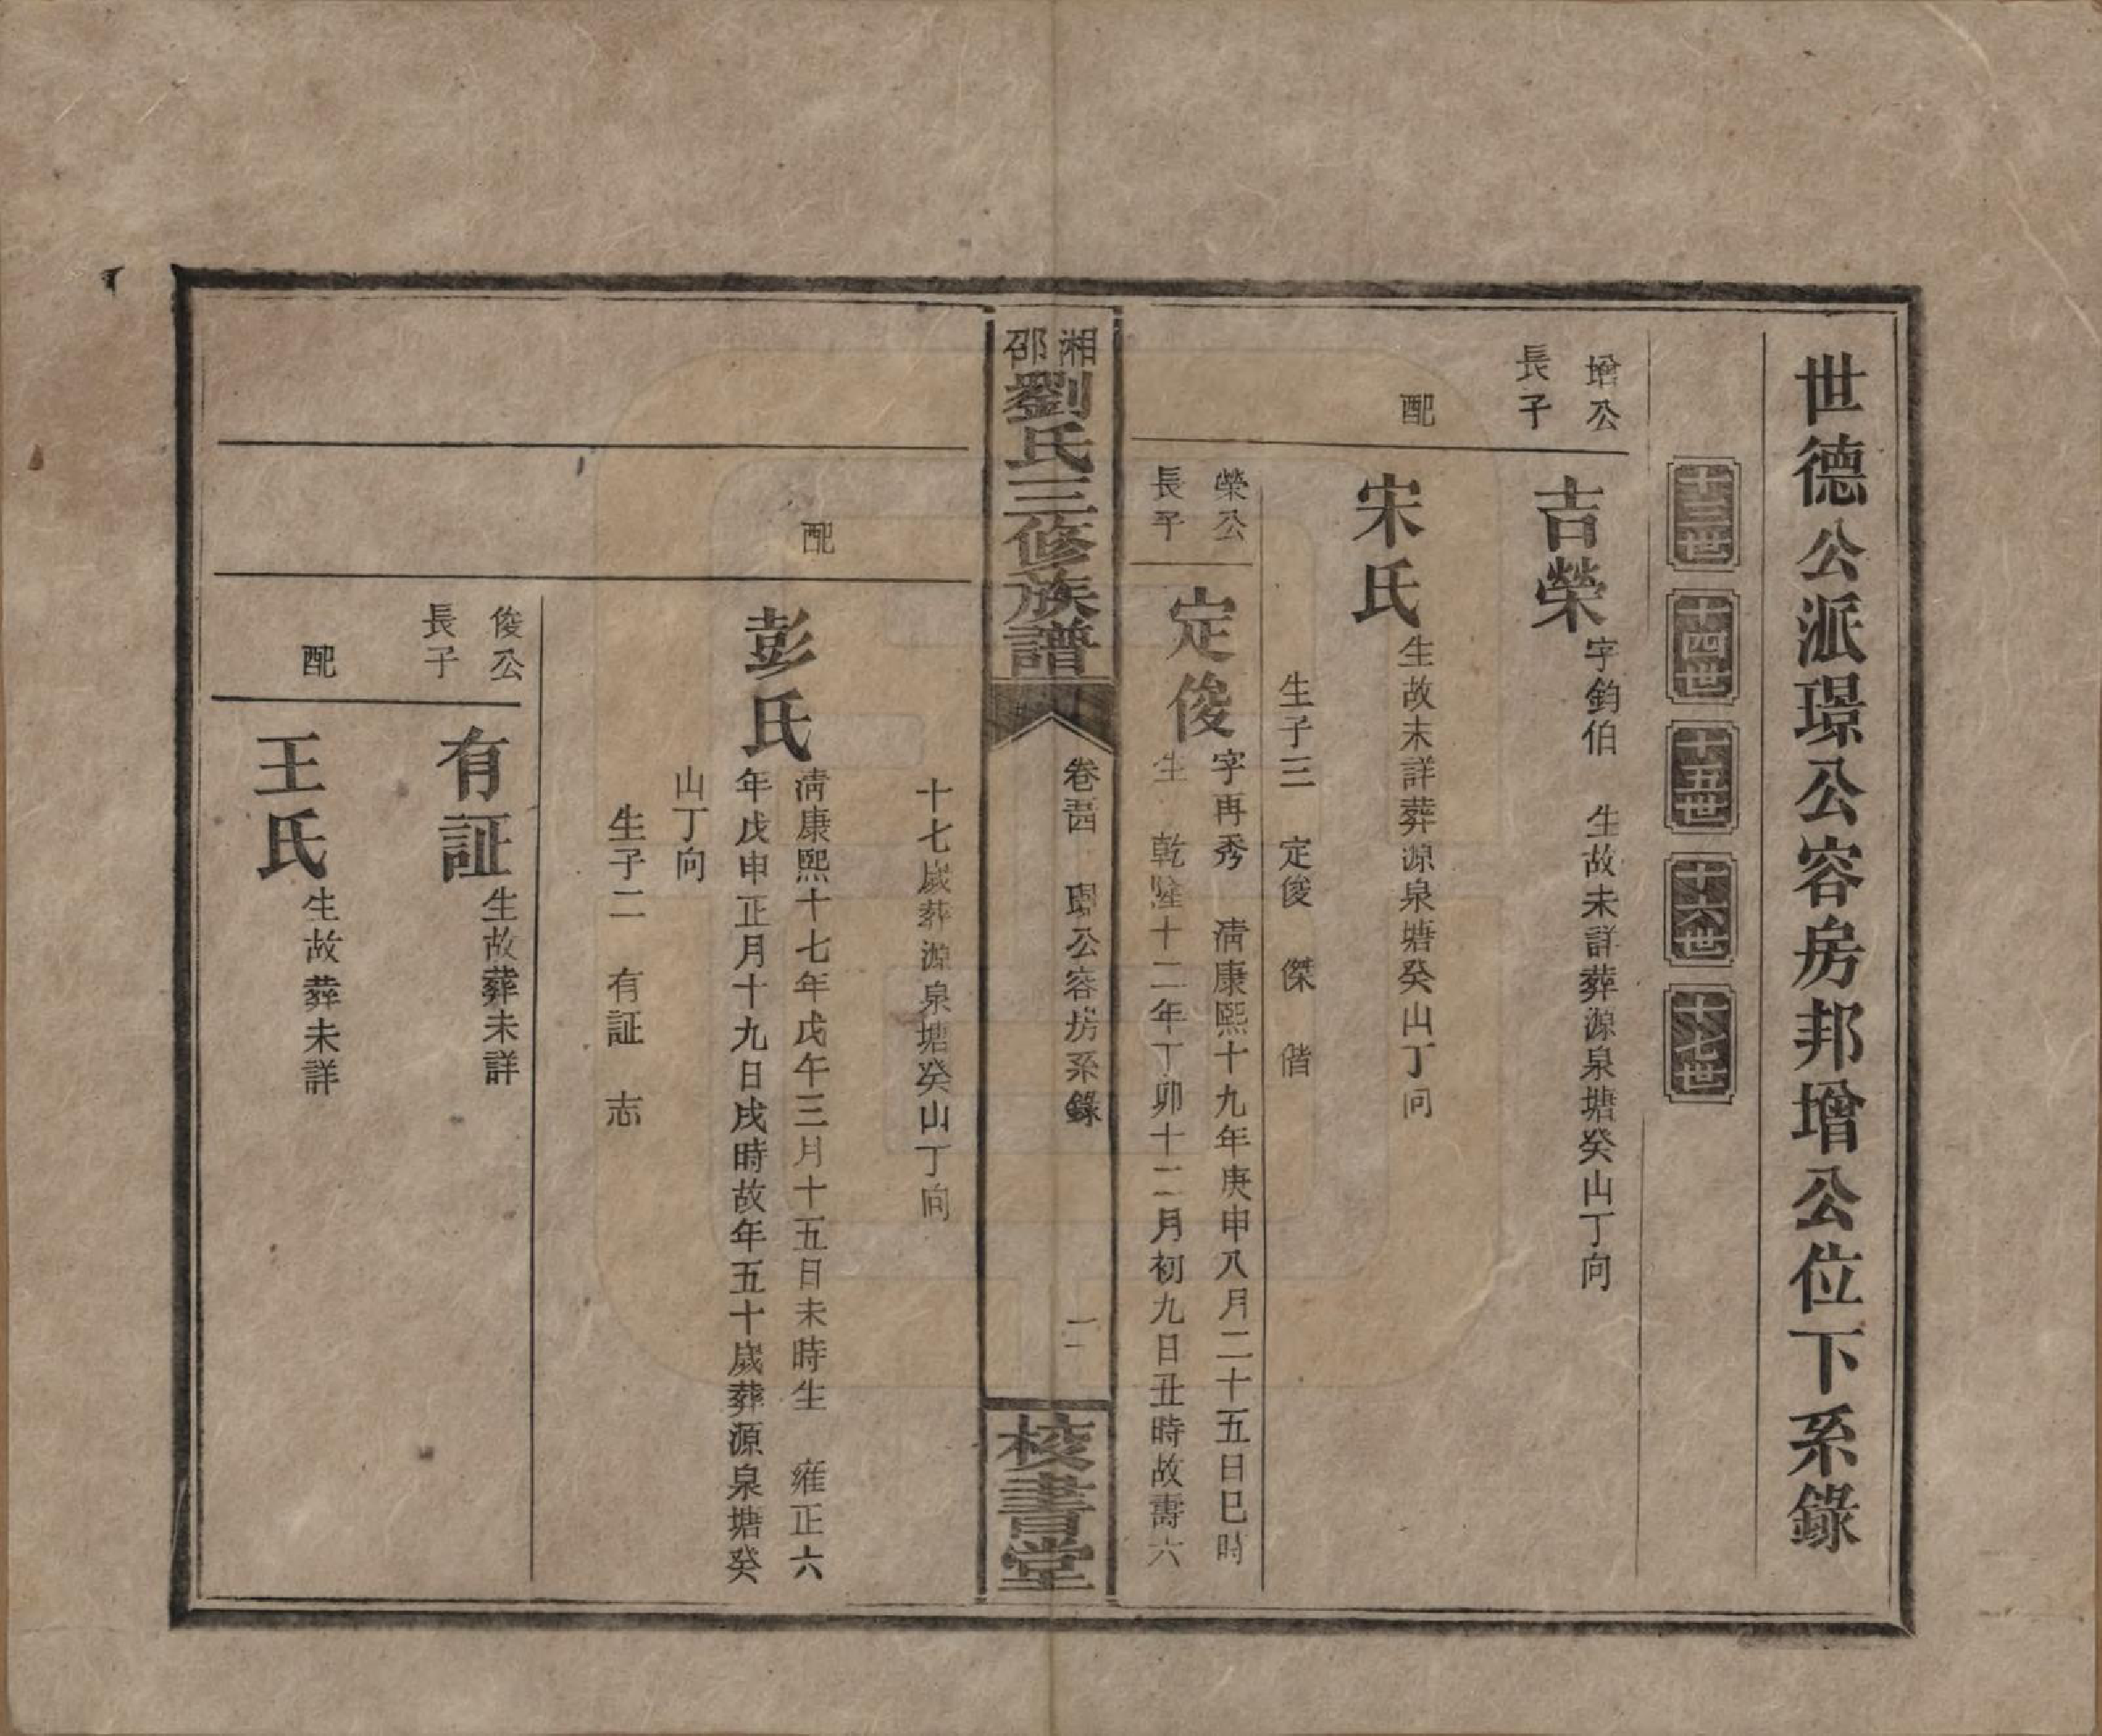 世德公派璟公容房邦增公位下系錄
十三世
十四世
十五世
十六世
十七世
增公
長子
吉榮
字鈞伯 生故未詳葬源泉塘癸山丁向
配
宋氏
生故未詳葬源泉塘癸山丁向
生子三 定俊 傑 偕
榮公
長子
定俊
字再秀 清康熙十九年庚申八月二十五日巳時
生 乾隆十二年丁卯十二月初九日丑時故壽六
湘邵
劉氏三修族譜
卷五四 璟公容房系錄
一
校書堂
十七歲葬源泉塘癸山丁向
配
彭氏
清康熙十七年戊午三月十五日未時生 雍正六
年戊申正月十九日戌時故年五十歲葬源泉塘癸
山丁向
生子二 有証 志
俊公
長子
有証
生故葬未詳
配
王氏
生故葬未詳